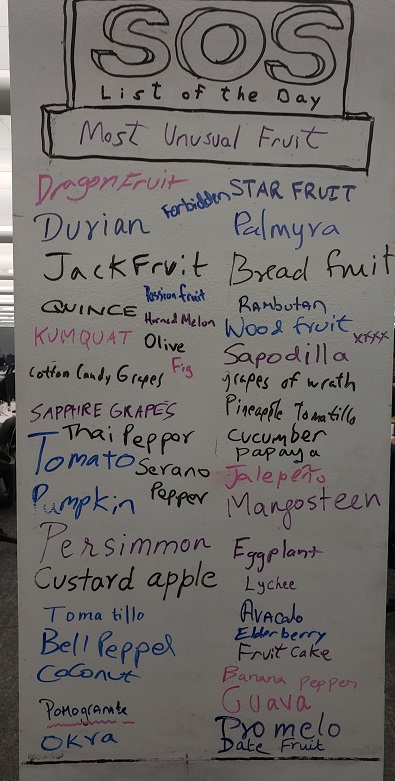 SOS
List of the Day
Most Unusual Fruit
Dragon Fruit
Durian
JackFruit
QUINCE
Passion fruit
Horned Melon
KUMQUAT
Olive
Cotton Candy Grapes
Fig
SAPPHIRE GRAPES
Thai Pepper
Tomato
Serano
Pepper
Pumpkin
Persimmon
Custard apple
Tomatillo
Bell Pepper
Coconut
Pomogranate
OKra
Forbidden
STAR FRUIT
Palmyra
Bread fruit
RAMBUTAN
Wood fruit
xxxx
Sapodilla
grapes of wrath
Pineapple Tomatillo
Cucumber
Papaya
Jalepeño
Mangosteen
Eggplant
Lychee
AVACADO
Elderberry
Fruit Cake
Banana pepper
Guava
Promelo
Date Fruit